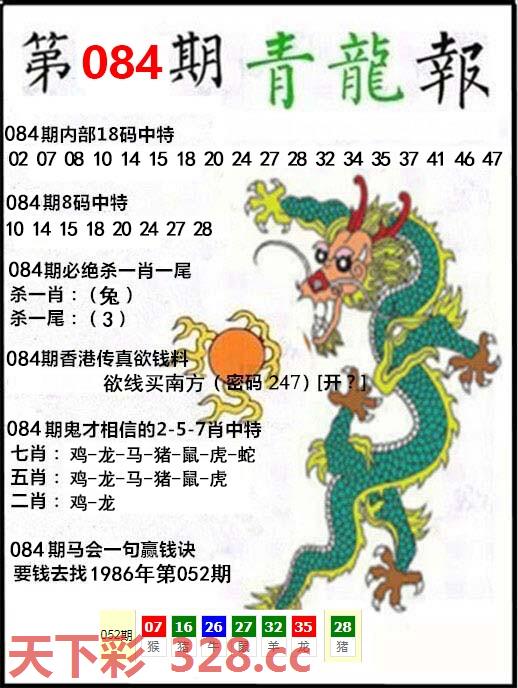 第084期青龍報
084期内部18码中特
02 07 08 10 14 15 18 20 24 27 28 32 34 35 37 41 46 47
084期8码中特
10 14 15 18 20 24 27 28
084期必绝杀一肖一尾
杀一肖：（兔）
杀一尾：（3）
084期香港传真欲钱料
欲线买南方（密码 247）[开？]
084期鬼才相信的2-5-7肖中特
七肖：鸡-龙-马-猪-鼠-虎-蛇
五肖：鸡-龙-马-猪-鼠-虎
二肖：鸡-龙
084期马会一句赢钱诀
要钱去找1986年第052期
052期 07 16 26 27 32 35 28
猴 猪 牛 鼠 羊 龙 猪
天下彩 328.cc